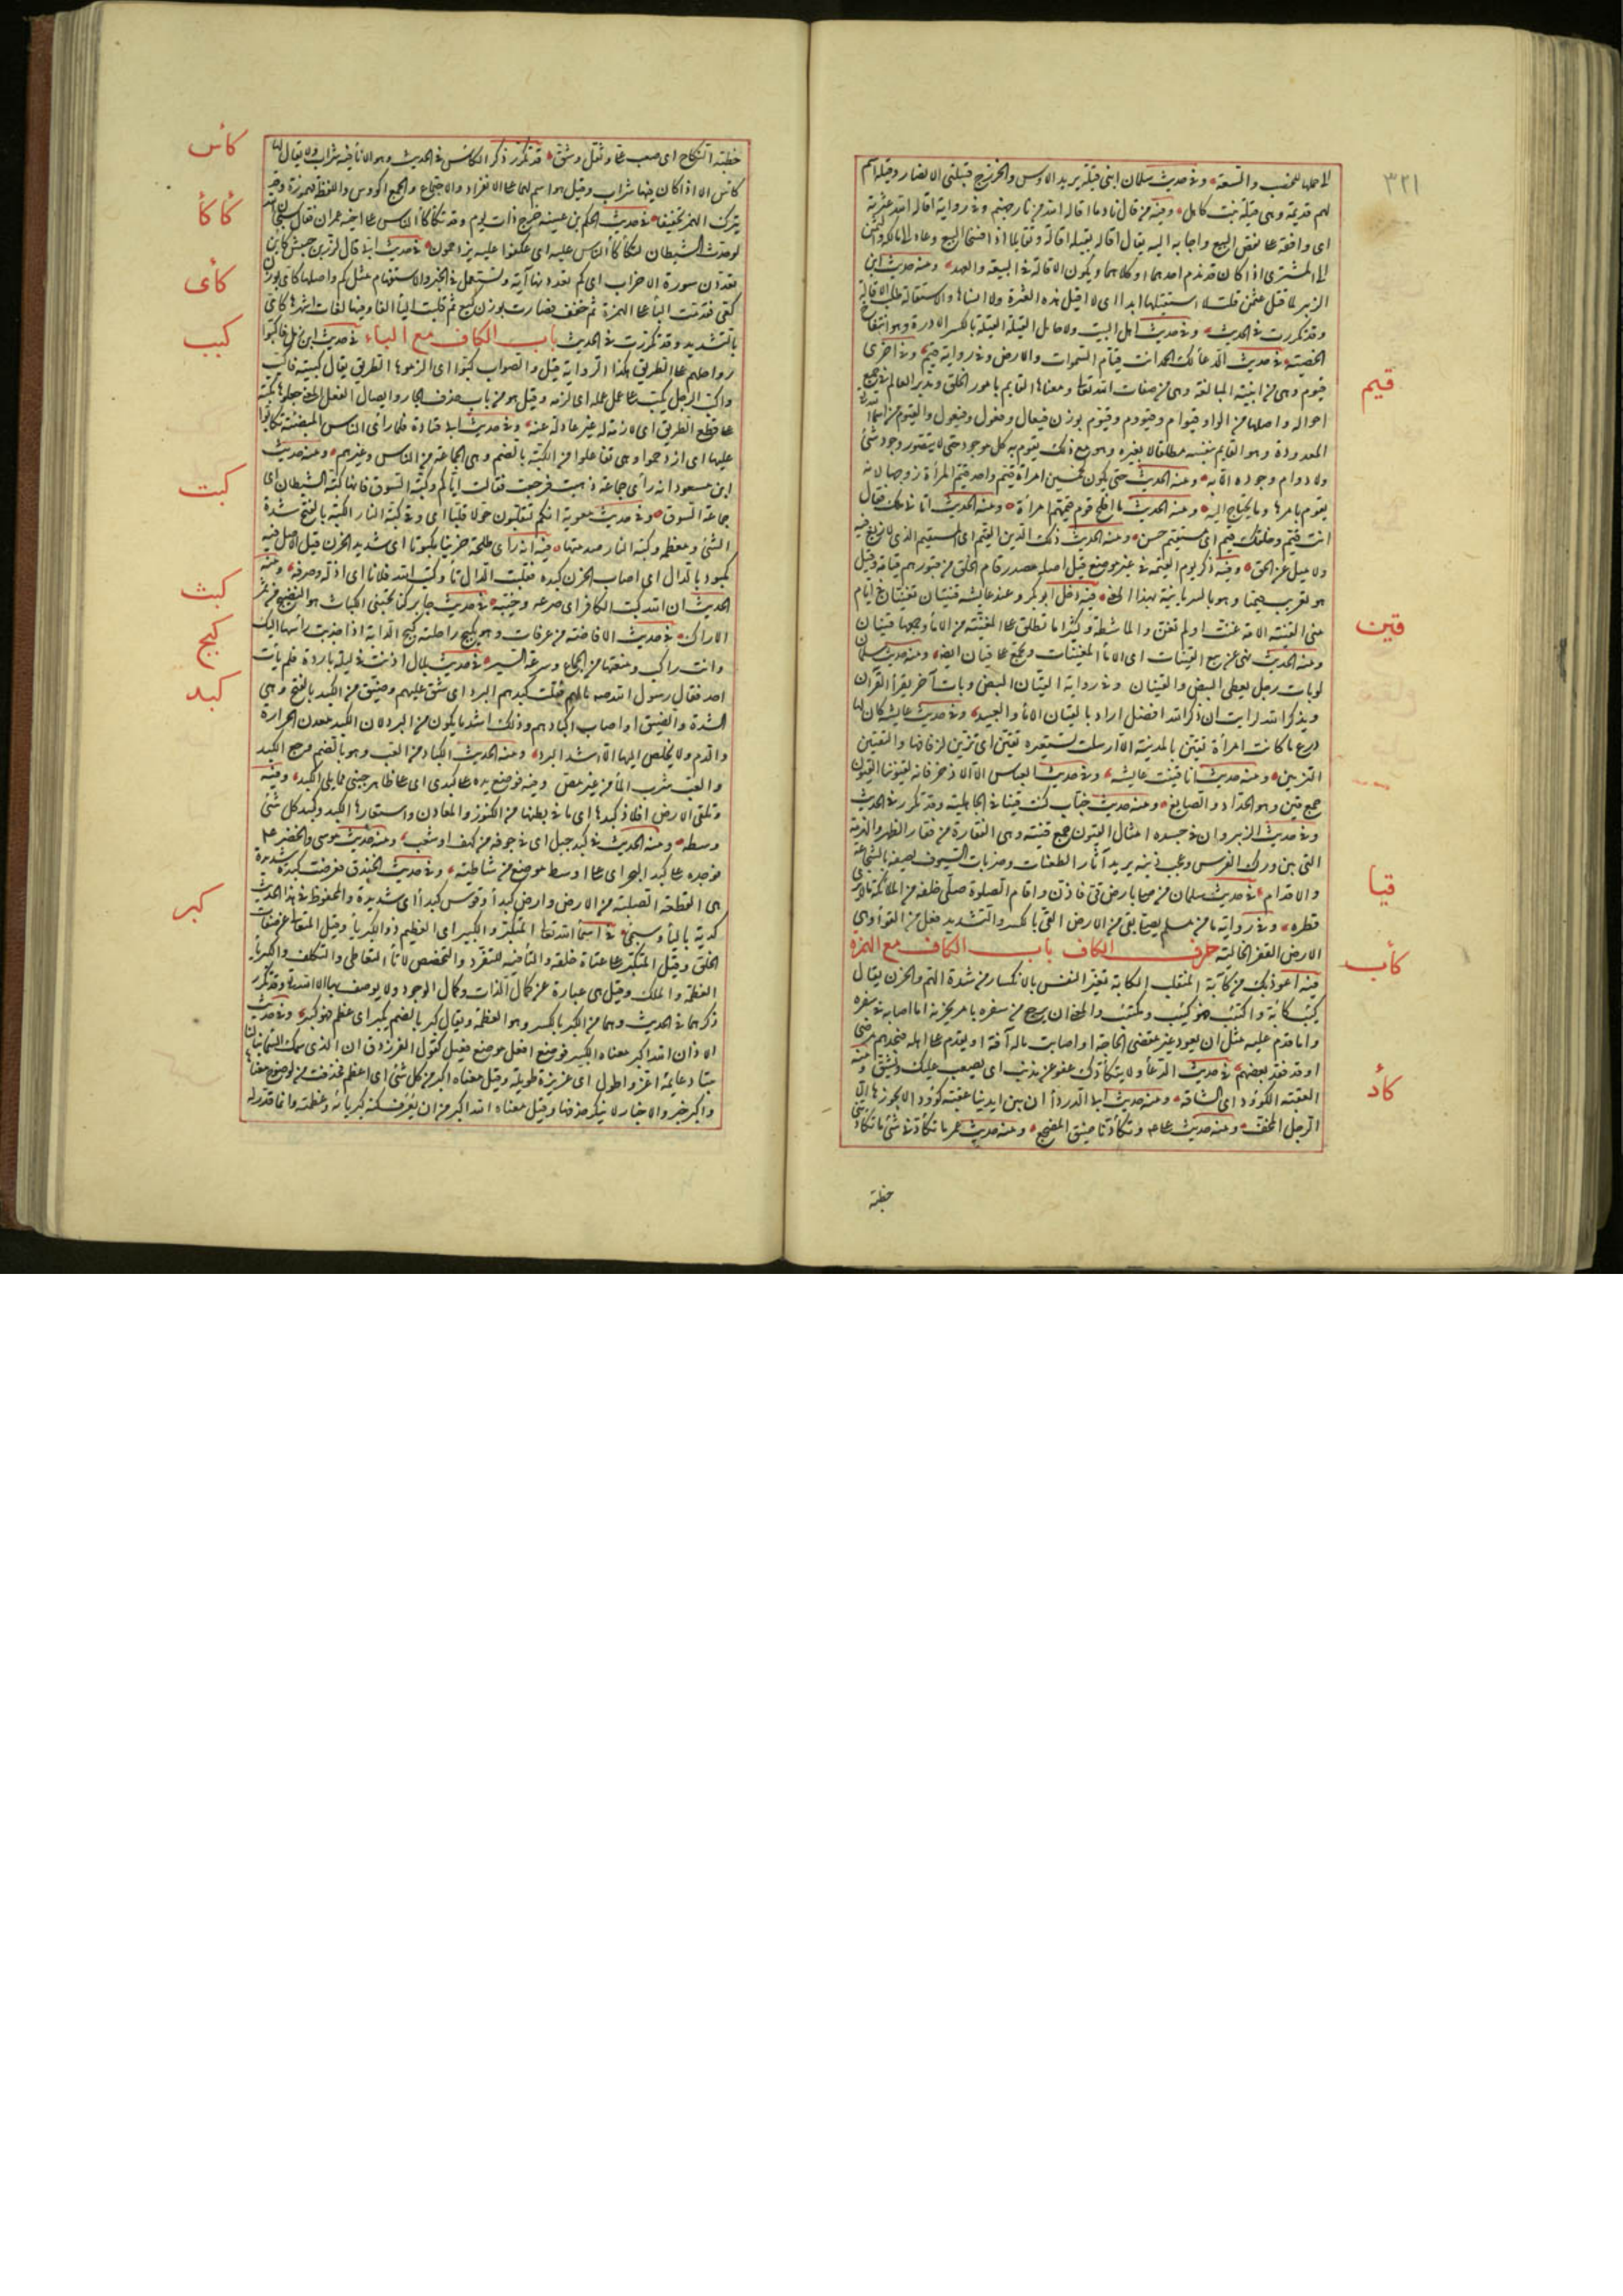 ٣٢١
لهم قديمة وهى قيلة بنت كاهل ومنه من قال نادما اقاله الله من نار جهنم وفى رواية اقاله الله عثرته
اى وافقه على نقض البيع واجابه اليه يقال اقاله يقيله اقالة وتقايلا اذا فسخا البيع وعاد
الى المشترى اذا كان قد ندم احدهما او كلاهما ويكون الاقالة فى البيعة والعهد ومنه حديث ابن
الزبير لما قتل عثمن قلت لا استقيلها ابدا اى لا اقيل هذه العثرة ولا انساها والاستقالة طلب الاقالة
وقد تكررت فى الحديث وفى حديث اهل البيت ولا حامل القيلة القيلة بالكسر الادرة وهو انتفاخ
الخصية فى حديث الدعاء لك الحمد انت قيام السموات والارض وفى رواية قيم وفى اخرى
قيم
قيوم وهى من ابنية المبالغة وهى من صفات الله تعا ومعناها القايم بامور الخلق ومدبر العالم فى جميع
احواله واصلها من الواو قيوام وقيووم وقيوم بوزن فيعال وفيعل وفيعول والقيوم من اسماء
المعدودة وهو القايم بنفسه مطلقا لا بغيره وهو مع ذلك يقوم به كل موجود حتى لا يتصور وجود شئ
ولا دوام وجوده الا به ومنه الحديث حتى يكون لخمسين امراة قيم واحد قيم المرأة زوجها لانه
يقوم بامرها وما يحتاج اليه ومنه الحديث ما افلح قوم قيمتهم امرأة ومنه الحديث اتانى ملك فقال
انت قيم وخلقك قيم اى مستقيم حسن ومنه الحديث ذلك الدين القيم اى المستقيم الذى لا زيغ فيه
ولا ميل عن الحق وفيه ذكر يوم القيمة فى غير موضع قيل اصله مصدر قام الخلق من قبورهم قيامة وقيل
هو تعريب قيمثا وهو بالسريانية بهذا المعنى فيه دخل ابو بكر وعند عايشة قينتان تغنيان فى ايام
قين
منى القينة الامة غنت او لم تغن والماشطة وكثيرا ما تطلق على المغنية من الاماء وجمعها قينات
ومنه الحديث نهى عن بيع القينات اى الاماء المغنيات وتجمع على قيان ايضا ومنه حديث سلمان
لو بات رجل يعطى البيض والقينان وفى رواية القيان البيض وبات آخر يقرأ القرآن
ويذكر الله لرايت ان ذكر الله افضل اراد بالقيان الاماء والعبيد وفى حديث عايشة كان لها
درع ما كانت امرأة تقين بالمدينة الا ارسلت تستعيره تقين اى تزين لزفافها والتقيين
التزيين ومنه حديث انا قينت عايشة وفى حديث العباس الا الاذخر فانه لقيوننا القيون
جمع قين وهو الحداد والصايغ ومنه حديث خباب كنت قينا فى الجاهلية وقد تكرر فى الحديث
وفى حديث الزبير وان فى جسده امثال القيون جمع قينة وهى الفقارة من فقار الظهر والهزمة
التى بين ورك الفرس وعجب ذنبه يريد آثار الطعنات وضربات السيوف يصفه بالشجاعة
قيا
والاقدام فى حديث سلمان من صلى بارض قى فاذن واقام الصلوة صلى خلفه من الملائكة
قطره وفى رواية ما من مسلم يصلى بقى من الارض القى بالكسر والتشديد فعل من القواء وهى
الارض القفر الخالية حرف الكاف باب الكاف مع الهمزة
كأب
فيه اعوذ بك من كآبة المنقلب الكابة تغير النفس بالانكسار من شدة الهم والحزن يقال
كئب كآبة واكتئب فهو كئيب ومكتئب والمعنى ان يرجع من سفره بامر يحزنه اما اصابه فى سفره
واما قدم عليه مثل ان يعود غير مقضى الحاجة او اصابت ماله آفة او يقدم على اهله فيجدهم مرضى
او قد فقد بعضهم فى حديث الدعاء ولا يتكأدك عفو عن مذنب اى يصعب عليك ويشق ومنه
كأد
العقبة الكؤود اى الشاقة ومنه حديث ابى الدرداء ان بين ايدينا عقبة كؤودا لا يجوزها الا
الرجل المخف ومنه حديث على وتكأدنا ضيق المضجع ومنه حديث عمر ما تكأدنى شئ ما تكأدنى
خطبة
خطبة النكاح اى صعب على وثقل وشق قد تكرر ذكر الكاس فى الحديث وهو الاناء فيه شراب ولا يقال لها
كأس
كاس الا اذا كان فيها شراب وقيل هو اسم لهما على الانفراد والاجتماع والجمع اكؤس واللفظ مهموزة وقد
يترك الهمز تخفيفا فى حديث الحكم بن عتيبة خرج ذات يوم وقد تكأكأ الناس على اخيه عمران فقال سبحان الله
كأكأ
لو حدث الشيطان لتكأكأ الناس عليه اى عكفوا عليه مزدحمون فى حديث ابى قال لزر بن حبيش كاين
تعدون سورة الاحزاب اى كم تعدونها آية وتستعمل فى الخبر والاستفهام مثل كم واصلها كائى بوزن
كأى
كعى فقدمت الياء على الهمزة ثم خففت فصارت بوزن كيع ثم قلبت الياء الفا وفيها لغات اشهرها كائى
بالتشديد وقد تكررت فى الحديث باب الكاف مع الباء فى حديث ابن زمل فاكبوا
كبب
رواحلهم على الطريق هكذا الرواية قيل والصواب كبوا اى الزموها الطريق يقال كببته فاكب
واكب الرجل يكب على عمل عمله اى لزمه وقيل هو من باب حذف الجار وايصال الفعل المعنى جعلوها مكبة
على قطع الطريق اى لازمة له غير عادلة عنه وفى حديث ابى قتادة فلما رأى الناس الميضئة تكابوا
عليها اى ازدحموا وهى تفاعلوا من الكبة بالضم وهى الجماعة من الناس وغيرهم ومنه حديث
ابن مسعود انه رأى جماعة ذهبت فرجعت فقالت اياكم وكبة السوق فانها كبة الشيطان اى
جماعة السوق وفى حديث معوية انكم لتقلبون حولا قلبا ان وقى كبة النار الكبة بالفتح شدة
كبت
الشئ ومعظمه وكبة النار صدمتها فيه انه رأى طلحة حزينا مكبوتا اى شديد الحزن قيل الاصل فيه
مكبود بالدال اى اصاب الحزن كبده فقلبت الدال تاء وكبت الله فلانا اى اذله وصرفه ومنه
الحديث ان الله كبت الكافر اى صرعه وخيبه فى حديث جابر كنا نجتنى الكباث هو النضيج من ثمر
كبث
الاراك فى حديث الافاضة من عرفات وهو يكبح راحلته كبح الدابة اذا جذبت رأسها اليك
كبح
وانت راكب ومنعتها من الجماح وسرعة السير فى حديث بلال اذنت فى ليلة باردة فلم يأت
احد فقال رسول الله صه ما لهم فقلت كبدهم البرد اى شق عليهم وضيق من الكبد بالفتح وهى
كبد
الشدة والضيق او اصاب اكبادهم وذلك اشد ما يكون من البرد لان الكبد معدن الحرارة
والدم ولا يخلص اليها الا اشد البرد ومنه الحديث الكباد من العب وهو بالضم وجع الكبد
والعب شرب الماء من غير مص وفيه فوضع يده على كبدى اى على ظاهر جنبى مما يلى الكبد وفيه
وتلقى الارض افلاذ كبدها اى ما فى بطنها من الكنوز والمعادن واستعار لها الكبد وكبد كل شئ
وسطه ومنه الحديث فى كبد جبل اى فى جوفه من كهف او شعب ومنه حديث موسى والخضر
فوجده على كبد البحر اى على اوسط موضع من شاطيه وفى حديث الخندق فعرضت كبدة شديدة
هى القطعة الصلبة من الارض وارض كبداء وقوس كبداء اى شديدة والمحفوظ فى هذا الحديث
كدية بالياء وسيجئ فى اسماء الله تعا المتكبر والكبير اى العظيم ذو الكبرياء وقيل المتعالى عن صفات
كبر
الخلق وقيل المتكبر على عتاة خلقه والتاء فيه للتفرد والتخصص لا تاء التعاطى والتكلف والكبرياء
العظمة والملك وقيل هى عبارة عن كمال الذات وكمال الوجود ولا يوصف بها الا الله وقد تكرر
ذكرهما فى الحديث وهما من الكبر بالكسر وهو العظمة ويقال كبر بالضم يكبر اى عظم فهو كبير وفى حديث
الاذان الله اكبر معناه الكبير فوضع افعل موضع فعيل كقول الفرزدق ان الذى سمك السماء بنى لنا
بيتا دعايمه اعز واطول اى عزيزة طويلة وقيل معناه اكبر من كل شئ اى اعظم فحذفت من لوضوح معناها
واكبر خبر والاخبار لا ينكر حذفها وقيل معناه الله اكبر من ان يعرف كنه كبريائه وعظمته وانما قدر له